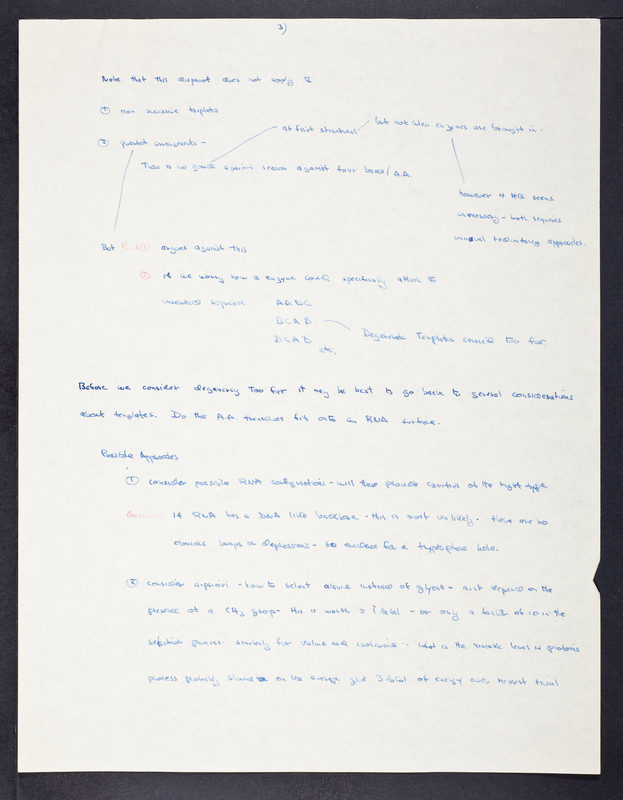 3)
Note that this disproof does not apply to
① non successive triplets
at first structural
but not when enzymes are brought in.
② quartet arrangements -
There is no good apriori reason against four bases/A.A.
however 4 seems
unnecessary - both requires
unusual redundancy approaches.
But argues against this
③ if we worry how a enzyme could specifically attach to
sequence AADC
BCAB
DCAD
etc.
Degenerate Templates carried too far.
Before we consider degeneracy too far it may be best to go back to general considerations
about templates. Do the A.A. themselves fit onto an RNA surface.
Possible Approaches
① consider possible RNA configurations - will these provide cavities of the right type
If RNA has a DNA like backbone - this is most unlikely. there are no
obvious bumps or depressions - no evidence for a tryptophane hole.
② consider apriori - how to select alanine instead of glycine - must depend on the
presence of a CH3 group - this is worth ≥ 1 kcal - or only a factor of 10 in the
selection process. similarly for valine and isoleucine. what is the mistake level in proteins
process probably should on the average give 3 kcal of energy over nearest rival